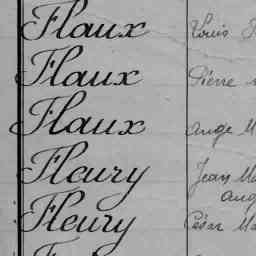 Flaux Louis
Flaux Pierre
Flaux Ange M
Fleury Jean Ma
Ang
Fleury César Ma